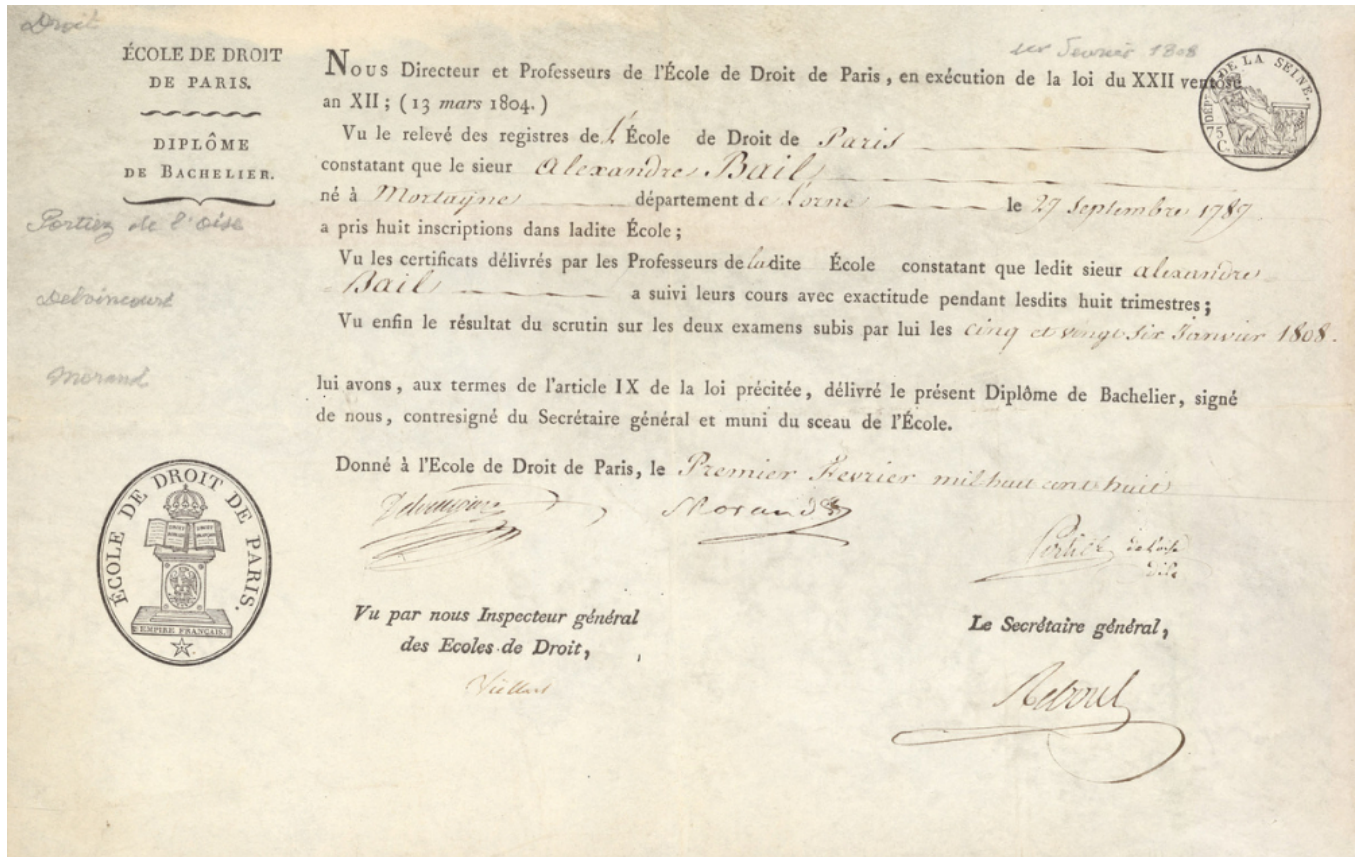 Droit
1er Fevrier 1808
ÉCOLE DE DROIT
DE PARIS.
DIPLÔME
DE BACHELIER.
Portiez de l'Oise
Delvincourt
Morand
DÉPT DE LA SEINE.
75
C.
NOUS Directeur et Professeurs de l'École de Droit de Paris, en exécution de la loi du XXII ventose
an XII; (13 mars 1804.)
Vu le relevé des registres de l'École de Droit de Paris
constatant que le sieur Alexandre Bail
né à Mortagne département de l'orne le 27 Septembre 1787
a pris huit inscriptions dans ladite École;
Vu les certificats délivrés par les Professeurs de ladite École constatant que ledit sieur alexandre
Bail a suivi leurs cours avec exactitude pendant lesdits huit trimestres;
Vu enfin le résultat du scrutin sur les deux examens subis par lui les cinq et vingt six Janvier 1808.
lui avons, aux termes de l'article IX de la loi précitée, délivré le présent Diplôme de Bachelier, signé
de nous, contresigné du Secrétaire général et muni du sceau de l'École.
Donné à l'Ecole de Droit de Paris, le Premier Fevrier mil huit cent huit
Delvincourt
Morand
Portiez de l'oise
ÉCOLE DE DROIT DE PARIS.
EMPIRE FRANÇAIS.
Vu par nous Inspecteur général
des Ecoles de Droit,
Le Secrétaire général,
Reboul